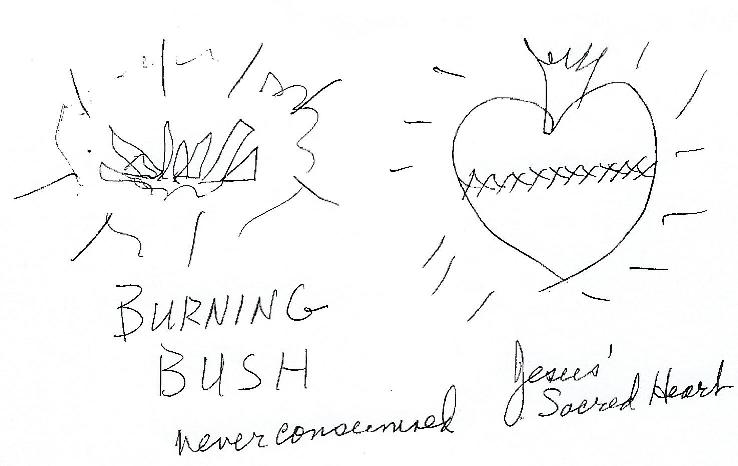 BURNING
BUSH
never consumed
Jesus'
Sacred Heart